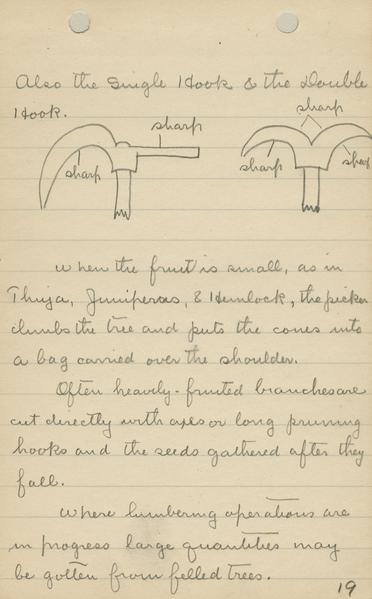 Also the Single Hook & the Double
Hook.
sharp
sharp
sharp
sharp
sharp
When the fruit is small, as in
Thuja, Juniperus, & Hemlock, the picker
climbs the tree and puts the cones into
a bag carried over the shoulder.
Often heavily-fruited branches are
cut directly with axes or long pruning
hooks and the seeds gathered after they
fall.
Where lumbering operations are
in progress large quantities may
be gotten from felled trees.
19